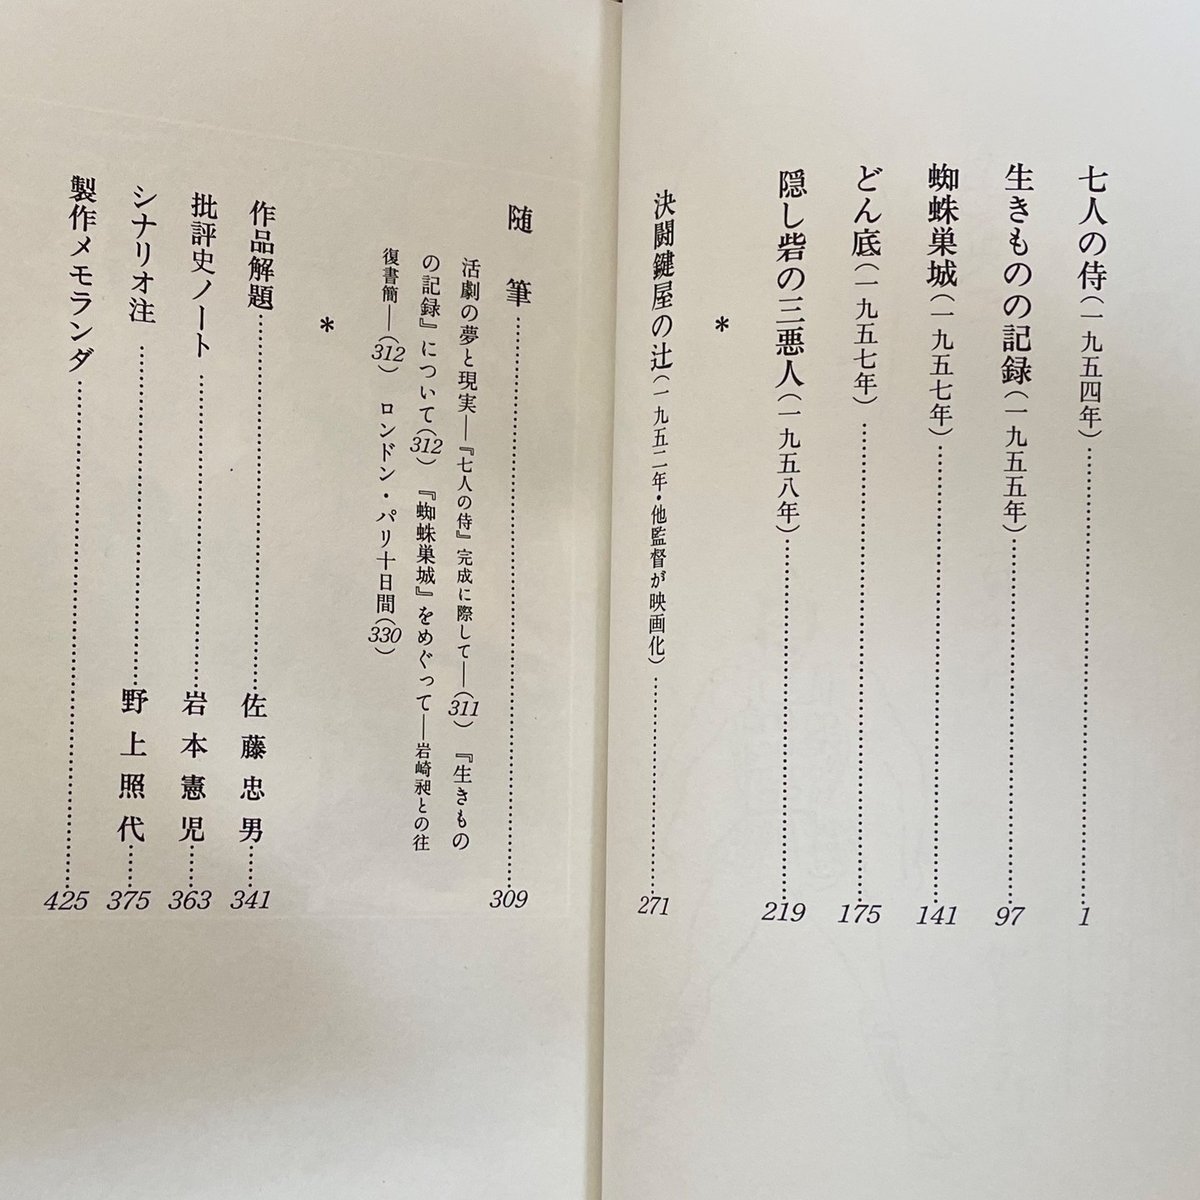 七人の侍（一九五四年）……1
生きものの記録（一九五五年）……97
蜘蛛巣城（一九五七年）……141
どん底（一九五七年）……175
隠し砦の三悪人（一九五八年）……219
＊
決闘鍵屋の辻（一九五二年・他監督が映画化）……271
随筆……309
活劇の夢と現実―『七人の侍』完成に際して―（311）『生きもの
の記録』について（312）『蜘蛛巣城』をめぐって―岩崎昶との往
復書簡―（312）ロンドン・パリ十日間（330）
＊
作品解題……佐藤忠男……341
批評史ノート……岩本憲児……363
シナリオ注……野上照代……375
製作メモランダ……425